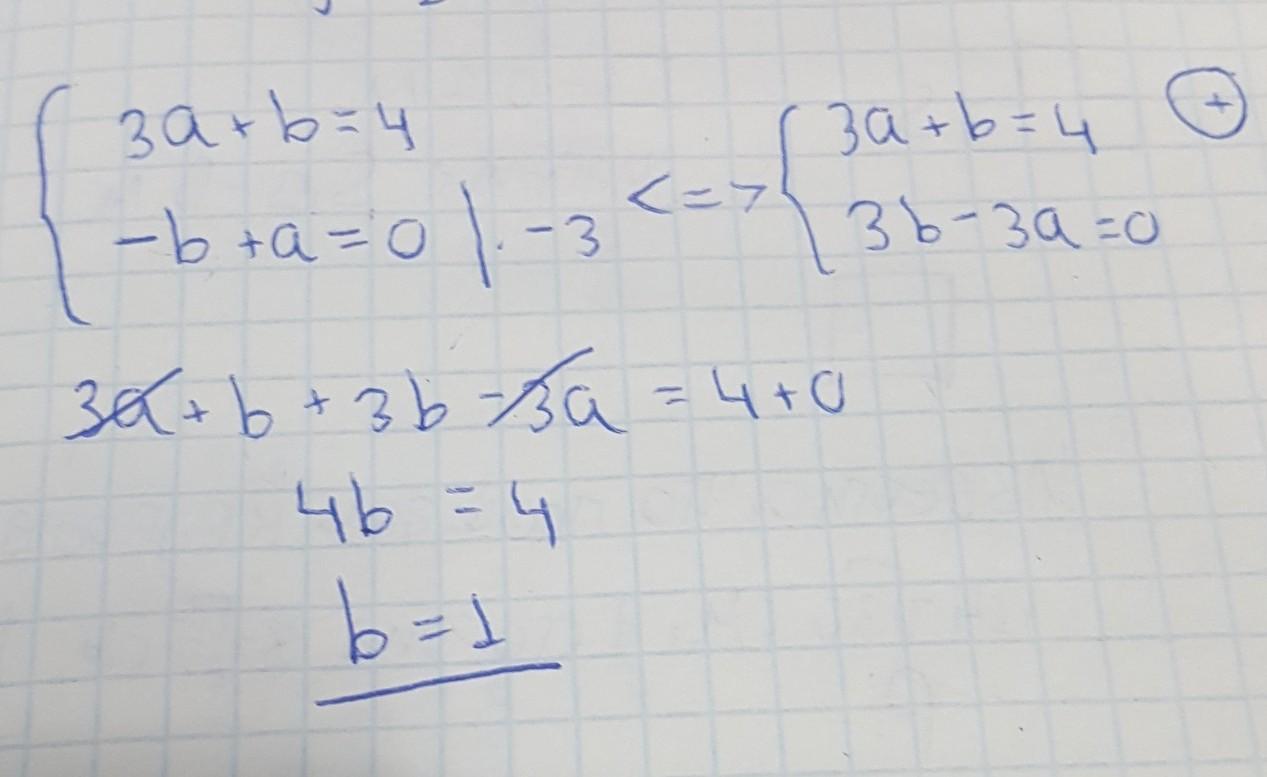 3a + b = 4
-b + a = 0 | · -3 <=> 3a + b = 4 +
3b - 3a = 0
3a + b + 3b - 3a = 4 + 0
4b = 4
b = 1